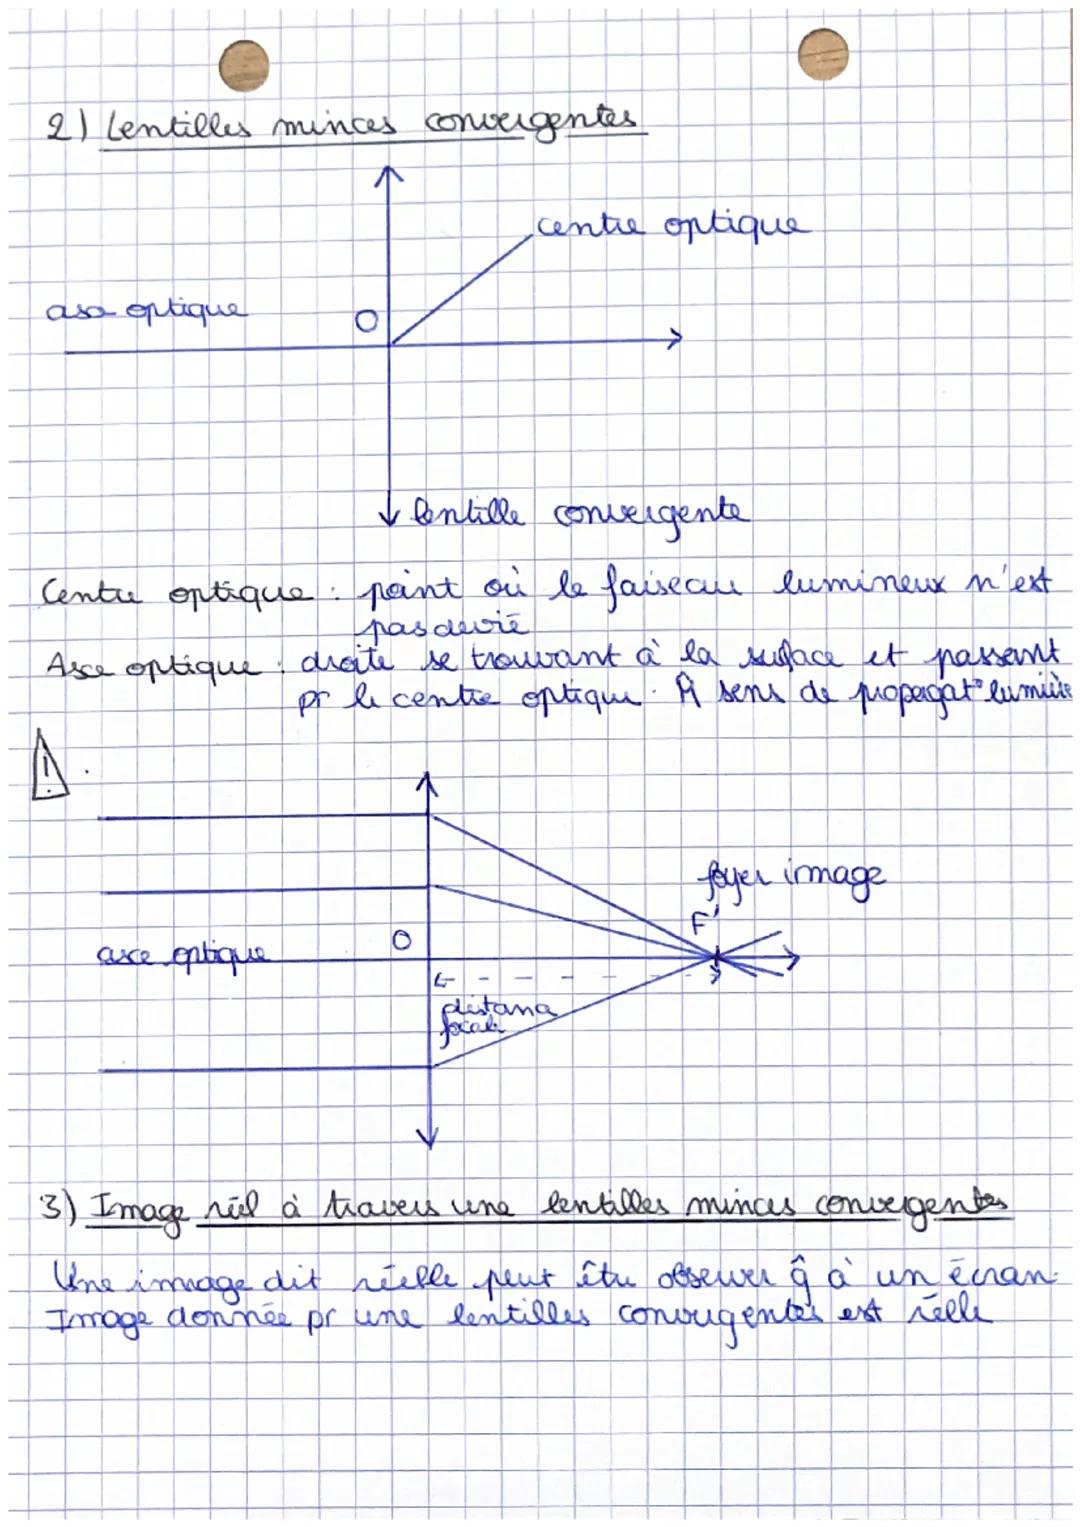 2) Lentilles minces convergentes
centre optique
axe optique
O
lentille convergente
Centre optique : point où le faiseau lumineux n'est
pas devié
Axe optique : droite se trouvant à la surface et passant
pr le centre optique. A sens de propagat° lumière
!
foyer image
F'
axe optique
O
distance
focale
3) Image réel à travers une lentilles minces convergentes
Une image dit réelle peut être observer ĝ à un écran.
Image donnée pr une lentilles convergentes est réelle